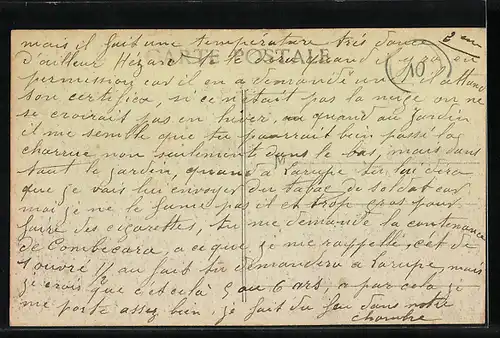 2 em
mais il fait une température très douce
CARTE POSTALE
d'ailleur te dira quand il ira en
permission car il en a demandé un il attend
son certifica, si ce n'était pas la neige on ne
se croirait pas en hiver, quand au jardin
il me semble que tu pourrait bien passé la
charrue non seulement dans le bas, mais dans
tout le jardin, quand à Larupe tu lui dira
que je vais lui envoyer du tabac de soldat car
moi je ne le fume pas il et trop gros pour
faire des cigarettes, tu me demande la contenance
de Combecara, a ce que je me rappelle, cet de
1 ouvré 1/2 au fait tu demandera a Larupe, mais
je crois que c'et celà 5 au 6 ars, a par cela je
me porte assez bien, je fait du feu dans notre
chambre
10